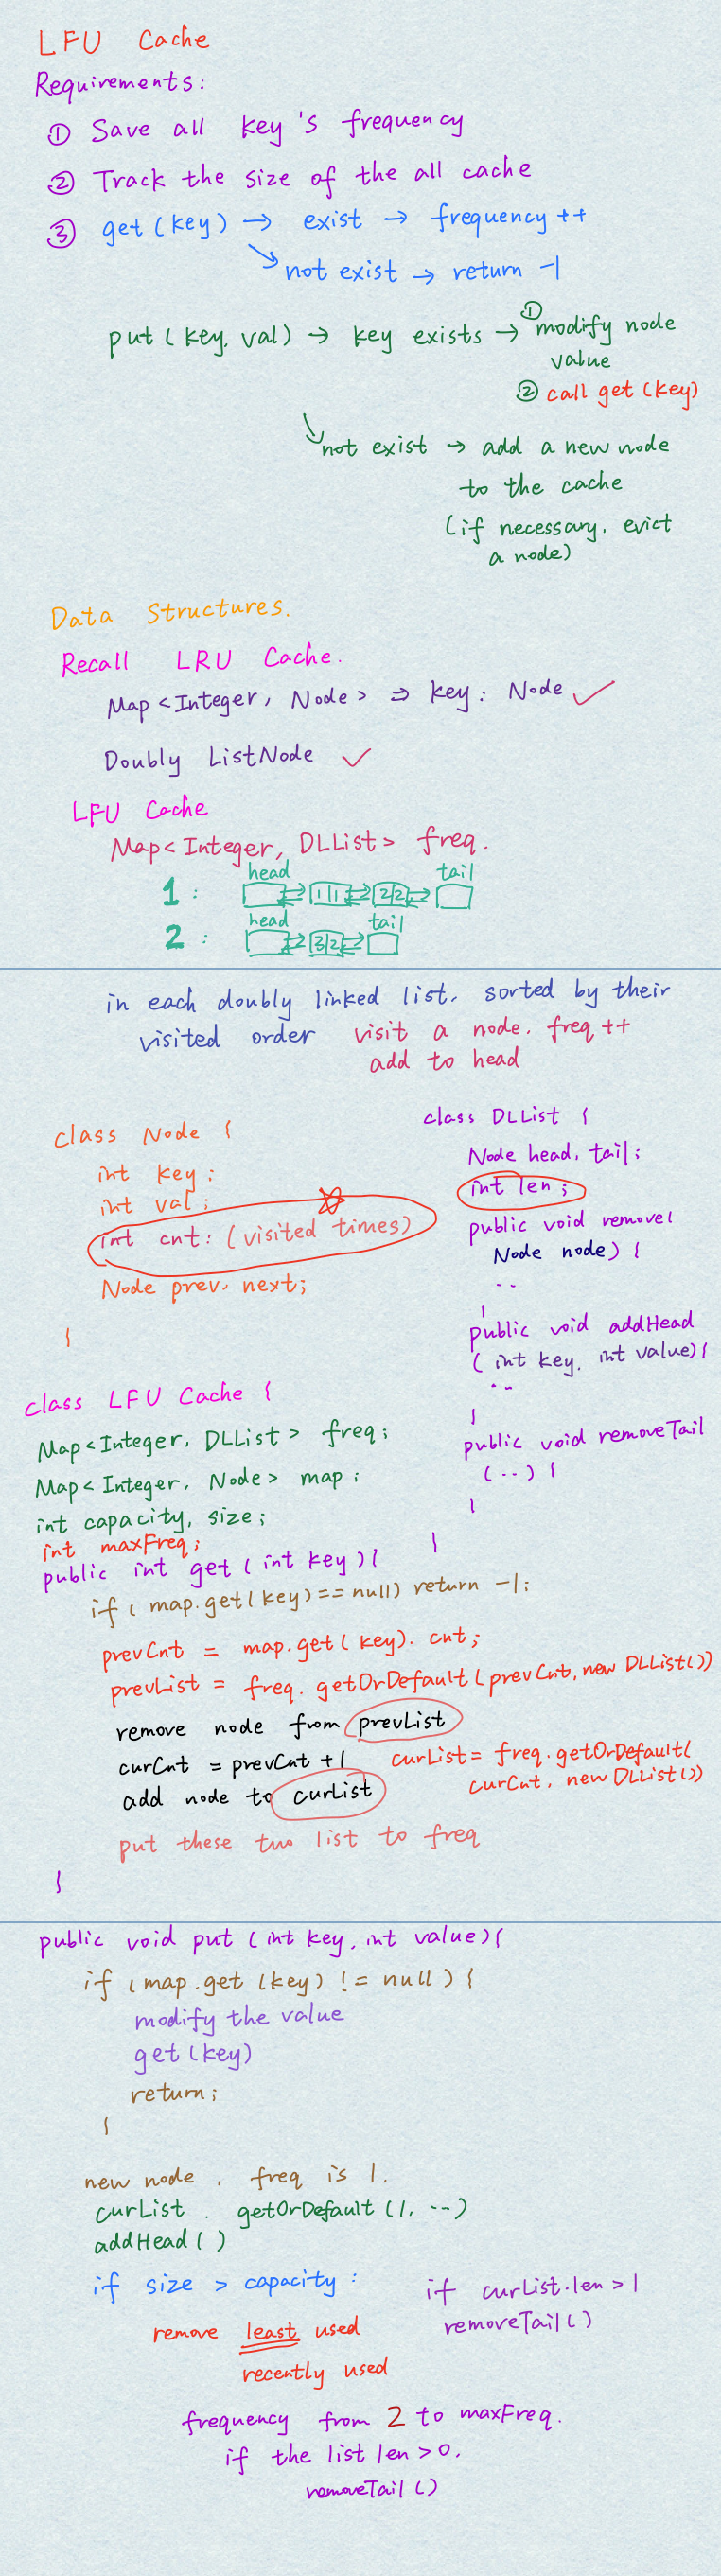 LFU Cache
Requirements:
① Save all key's frequency
② Track the size of the all cache
③ get (key) → exist → frequency ++
↘ not exist → return -1
put (key, val) → key exists → ① modify node
value
② call get (key)
↘ not exist → add a new node
to the cache
(if necessary, evict
a node)
Data Structures.
Recall LRU Cache.
Map <Integer, Node> ⇒ key: Node ✓
Doubly ListNode ✓
LFU Cache
Map<Integer, DLList> freq.
head tail
1: 1|1 2|2
head tail
2: 3|2
in each doubly linked list, sorted by their
visited order visit a node, freq ++
add to head
class Node {
int key;
int val;
int cnt: (visited times)
Node prev, next;
}
class DLList {
Node head, tail;
int len;
public void remove(
Node node) {
..
}
public void addHead
(int key, int value) {
..
}
public void removeTail
(..) {
}
}
class LFU Cache {
Map<Integer, DLList> freq;
Map<Integer, Node> map;
int capacity, size;
int maxFreq;
public int get (int key) {
if (map.get(key) == null) return -1;
prevCnt = map.get(key). cnt;
prevList = freq. getOrDefault (prevCnt, new DLList())
remove node from prevList
curCnt = prevCnt +1
curList = freq. getOrDefault(
curCnt, new DLList())
add node to curList
put these two list to freq
}
public void put (int key, int value) {
if (map.get (key) != null) {
modify the value
get (key)
return;
}
new node, freq is 1.
curList. getOrDefault (1, ..)
addHead ()
if size > capacity:
if curList.len > 1
removeTail ()
remove least used
recently used
frequency from 2 to maxFreq.
if the list len > 0.
removeTail ()